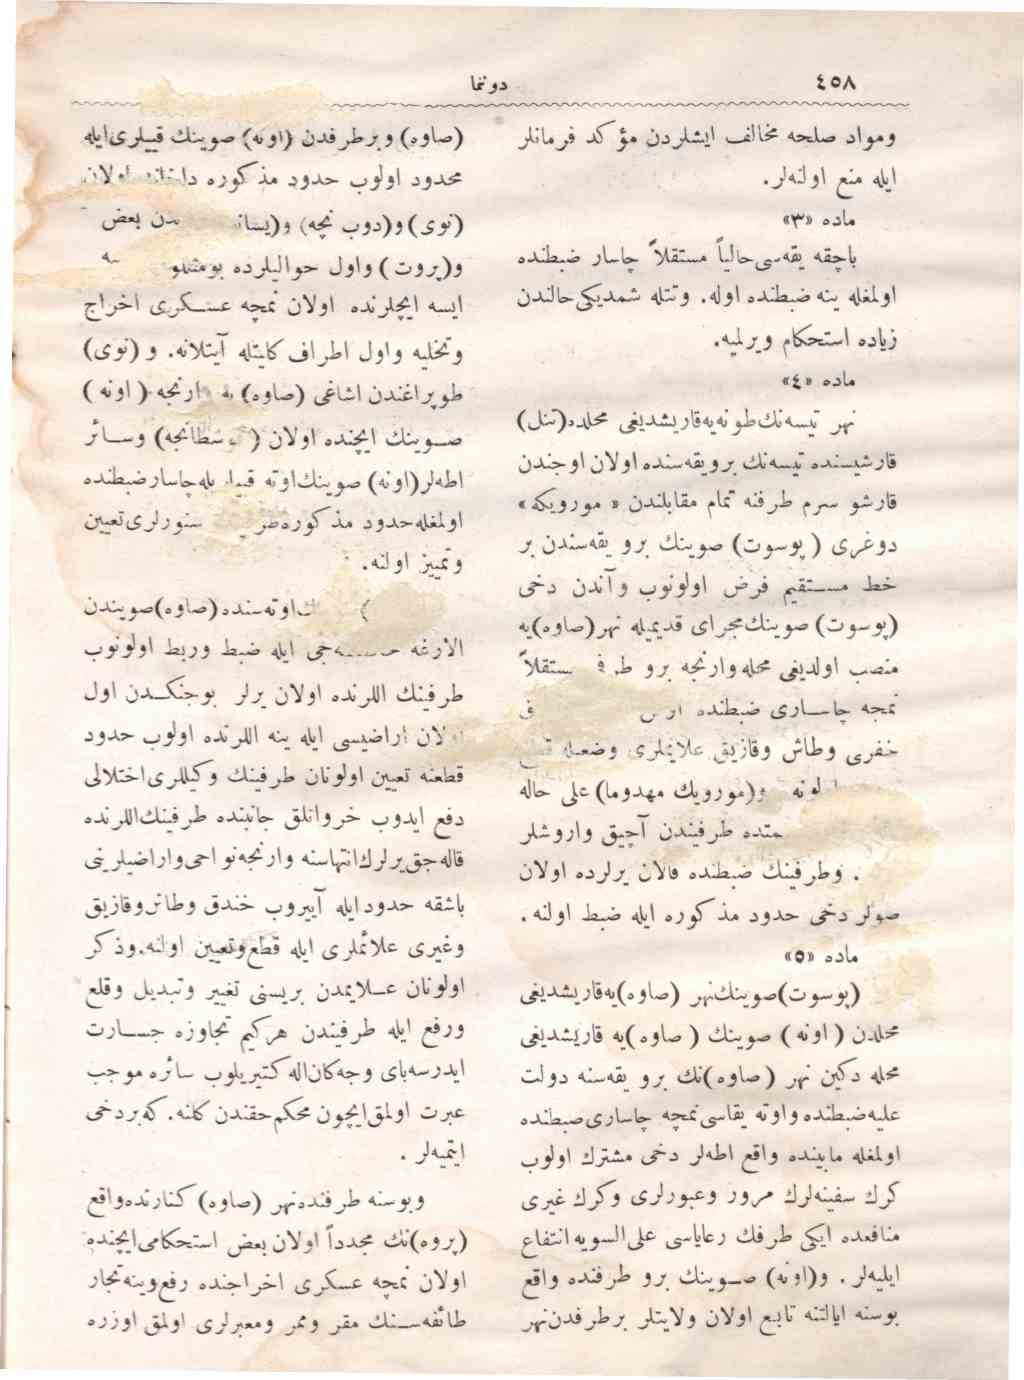 ٤٥٨
دوننما
ومواد صلحه مخالف ایشلردن مؤكد فرمانلر
ایله منع اولنه‌لر.
ماده «٣»
باچقه یقه‌سی حالیاً مستقلاً چاسار ضبطنده
اولمغله ینه ضبطنده اوله. وتتله شمدیكی حالندن
زیاده استحكام ویرلمیه.
ماده «٤»
نهر تیسه‌نك طونه‌یه قاریشدیغی محلده (تتل)
قارشیسنده تیسه‌نك برویقه‌سنده اولان اوجندن
قارشو سرم طرفنه تمام مقابلندن « مورویكه »
دوغری ( پوسوت) صوینك برو یقه‌سندن بر
خط مستقیم فرض اولونوب وآندن دخی
(پوسوت) صوینك مجرای قدیمیله نهر (صاوه) یه
منصب اولدیغی محله وارنجه برو مستقلاً
نمچه چاساری ضبطنده
حفری وطاش وقازیق علایملری وضعیله قطع
و(مورویك مهدوما) علی حاله
طرفیندن آچیق واروشلر
. وطرفینك ضبطنده قالان یرلرده اولان
صولر دخی حدود مذكوره ایله ضبط اولنه .
ماده «٥»
(پوسوت) صوینك نهر (صاوه) یه قاریشدیغی
محلدن ( اونه ) صوینك ( صاوه ) یه قاریشدیغی
محله دكین نهر (صاوه) نك برو یقه‌سنه دولت
علیه ضبطنده واوته یقاسی نمچه چاساری ضبطنده
اولمغله مابینده واقع اطه‌لر دخی مشترك اولوب
كرك سفینه‌لرك مرور وعبورلری وكرك غیری
منافعده ایكی طرفك رعایاسی علی السویه انتفاع
ایلیه‌لر . و(اونه) صوینك برو طرفنده واقع
بوسنه ایالتنه تابع اولان ولایتلر برطرفدن نهر
(صاوه) وبرطرفدن (اونه) صوینك قییلری ایله
محدود اولوب حدود مذكوره داخلنده اولان
(نوی) و(دوب نچه) و بعض
و(پروت) واول حوالیلرده
ایسه ایچلرنده اولان نمچه عسكری اخراج
وتخلیه واول اطراف كلیتله آیتلانه. و (نوی)
طوپراغندن اشاغی (صاوه) یه وارنجه ( اونه )
صوینك ایچنده اولان وسائر
اطه‌لر (اونه) صوینك اوته چاسار ضبطنده
اولمغله حدود مذكوره سنورلری تعیین
وتمییز اولنه.
اوته‌سنده (صاوه) صویندن
الارغه ایله ضبط وربط اولونوب
طرفینك اللرنده اولان یرلر بوجنكدن اول
اولان اراضیسی ایله ینه اللرنده اولوب حدود
قطعنه تعیین اولونان طرفینك وكیللری اختلالی
دفع ایدوب خروانلق جانبنده طرفینك اللرنده
قاله‌جق یرلرك انتهاسنه وارنجه نواحی واراضیلرینی
باشقه حدود ایله آییروب خندق وطاش وقازیق
وغیری علائملری ایله قطع وتعیین اولنه. وذكر
اولونان علایمدن بریسنی تغییر وتبدیل وقلع
ورفع ایله طرفیندن هركیم تجاوزه جسارت
ایدرسه بای وجه كان اله كتیریلوب سائره موجب
عبرت اولمق ایچون محكم حقندن كلنه. كه بردخی
ایتمیه‌لر .
وبوسنه طرفنده نهر (صاوه) كنارنده واقع
(پروه) نك مجدداً اولان بعض استحكامی ایچنده
اولان نمچه عسكری اخراجنده رفع وینه تجار
طائفه‌سنك مقر وممر ومعبرلری اولمق اوزره